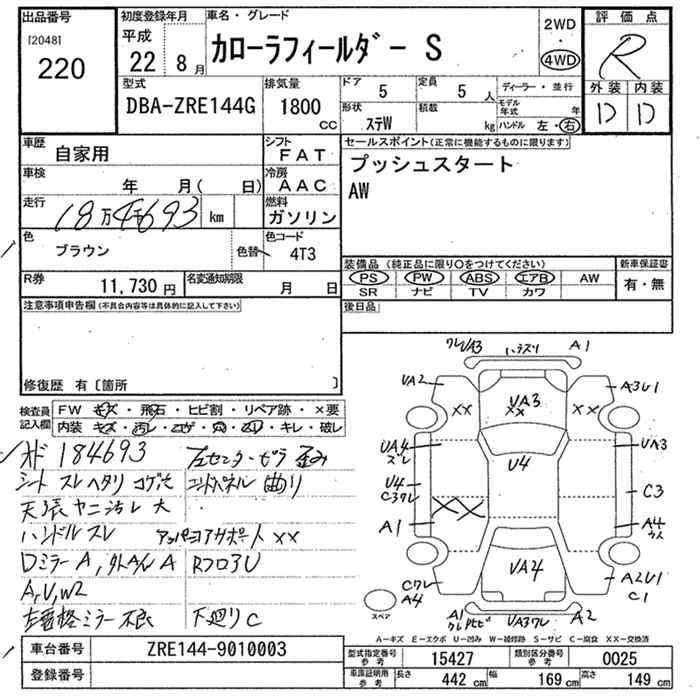 出品番号
[2048]
220
初度登録年月
平成
22 8月
車名・グレード
カローラフィールダー S
2WD
・
4WD
評価点
R
外装 内装
D D
型式
DBA-ZRE144G
排気量
1800
CC
ドア
5
定員
5 人
形状
ステW
積載
kg
ディーラー・並行
モデル年式 年
ハンドル 左・右
車歴
自家用
シフト
FAT
車検
年 月( 日)
冷房
AAC
走行
18万4千693 km
燃料
ガソリン
色
ブラウン
色替
色コード
4T3
R券
11,730 円
名変通知期限
月 日
セールスポイント(正常に機能するものに限ります)
プッシュスタート
AW
装備品(純正品に限り○をつけてください)
PS PW ABS エアB AW
SR ナビ TV カワ
新車保証書
有・無
後日品
注意事項申告欄(不具合内容等は具体的に記入して下さい)
修復歴 有〔箇所 〕
検査員記入欄
FW キズ・飛石・ヒビ割・リペア跡・×要
内装 キズ・汚レ・コゲ・穴・ソリ・キレ・破レ
オド 184693
シート スレ ヘタリ コゲ穴
天張 ヤニ汚レ 大
ハンドル スレ
Dミラー A, 外Aル A
A,U,W2
左電格ミラー不良
左センターピラ 歪み
エンドパネル 曲り
アッパーコアサポート ××
Rフロア U
下廻り C
クレ UA3
ハナズリ
A1
UA2
××
UA3
××
A3U1
UA4
ズレ
U4
UA3
U4
C3クレ
C3
××
A1
A4
クレ
A4
UA4
A2U1
C1
スペア
A1
UA3クレ
A2
A-キズ E-エクボ U-凹み W-補修跡 S-サビ C-腐食 XX-交換済
車台番号
ZRE144-9010003
登録番号
型式指定番号
参考
15427
類別区分番号
参考
0025
車庫証明用
参考
長さ 442 cm
幅 169 cm
高さ 149 cm